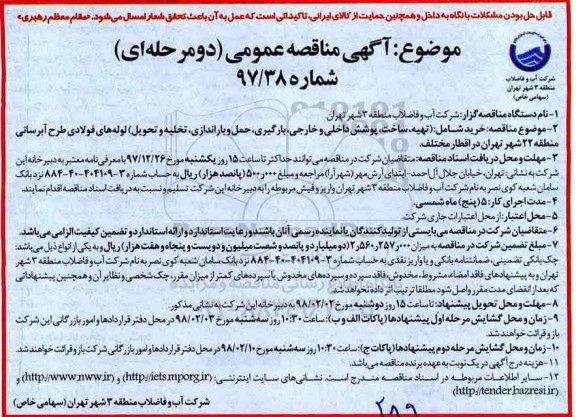 قابل حل بودن مشکلات با نگاه به داخل و همچنین حمایت از کالای ایرانی، تاکیداتی است که عمل به آن باعث تحقق شعار امسال می‌شود. «مقام معظم رهبری»
موضوع: آگهی مناقصه عمومی (دو مرحله‌ای)
شماره ۹۷/۳۸
شرکت آب و فاضلاب
منطقه ۳ شهر تهران
(سهامی خاص)
۱- نام دستگاه مناقصه گزار: شرکت آب و فاضلاب منطقه ۳ شهر تهران
۲- موضوع مناقصه: خرید شامل: (تهیه، ساخت، پوشش داخلی و خارجی، بارگیری، حمل و باراندازی، تخلیه و تحویل) لوله‌های فولادی طرح آبرسانی
منطقه ۲۲ شهر تهران در اقطار مختلف.
۳- مهلت و محل دریافت اسناد مناقصه: متقاضیان شرکت در مناقصه می‌توانند حداکثر تا ساعت ۱۵ روز یکشنبه مورخ ۹۷/۱۲/۲۶ با معرفی‌نامه معتبر به دبیرخانه این
شرکت به نشانی: تهران، خیابان جلال آل احمد- ابتدای آرش مهر (شهرآرا) مراجعه و مبلغ ۵۰۰٫۰۰۰ (پانصد هزار) ریال به حساب شماره ۳-۴۰۴۱۰۹-۴۰-۸۸۴ نزد بانک
سامان شعبه کوی نصر به نام شرکت آب و فاضلاب منطقه ۳ شهر تهران واریز و فیش مربوطه را به دبیرخانه این شرکت تسلیم و نسبت به دریافت اسناد مناقصه اقدام نمایند.
۴- مدت اجرای کار: ۵ (پنج) ماه شمسی.
۵- محل اعتبار: از محل اعتبارات جاری شرکت.
۶- متقاضیان شرکت در مناقصه می‌بایستی از تولیدکنندگان یا نماینده رسمی آنان باشند و رعایت استاندارد و ارائه استاندارد و تضمین کیفیت الزامی می‌باشد.
۷- مبلغ تضمین شرکت در مناقصه به میزان ۲٫۵۶۰٫۲۵۷٫۰۰۰ (دو میلیارد و پانصد و شصت میلیون و دویست و پنجاه و هفت هزار) ریال و به یکی از انواع ذیل می‌باشد:
چک بانکی تضمینی، ضمانتنامه بانکی و یا واریز نقدی به حساب شماره ۳-۴۰۴۱۰۹-۴۰-۸۸۴ نزد بانک سامان شعبه کوی نصر به نام شرکت آب و فاضلاب منطقه ۳ شهر
تهران و به پیشنهادهای فاقد امضاء، مشروط، مخدوش، فاقد سپرده و سپرده‌های مخدوش یا سپرده‌های کمتر از میزان مقرر، چک شخصی و نظایر آن و همچنین پیشنهاداتی
که بعد از انقضای مدت مقرر واصل شود مطلقا ترتیب اثر داده نخواهد شد.
۸- مهلت و محل تحویل پیشنهاد: تا ساعت ۱۵ روز دوشنبه مورخ ۹۸/۰۲/۰۲ به دبیرخانه این شرکت به نشانی مذکور.
۹- زمان و محل گشایش مرحله اول پیشنهادها (پاکات الف و ب): ساعت: ۱۰:۳۰ روز سه‌شنبه مورخ ۹۸/۰۲/۰۳ در محل دفتر قراردادها و امور بازرگانی این شرکت
باز و قرائت خواهند شد.
۱۰- زمان و محل گشایش مرحله دوم پیشنهادها (پاکات ج): ساعت: ۱۰:۳۰ روز سه‌شنبه مورخ ۹۸/۰۲/۱۰ در محل دفتر قراردادها و امور بازرگانی شرکت باز و قرائت خواهند شد.
۱۱- هزینه درج آگهی در یک نوبت به عهده برنده مناقصه می‌باشد.
۱۲- سایر اطلاعات مربوطه در اسناد مناقصه مندرج است. نشانی‌های سایت اینترنتی: (http://iets.mporg.ir) و (http://www.nww.ir) و
(http://tender.bazresi.ir)
شرکت آب و فاضلاب منطقه ۳ شهر تهران (سهامی خاص)
۲۸۹